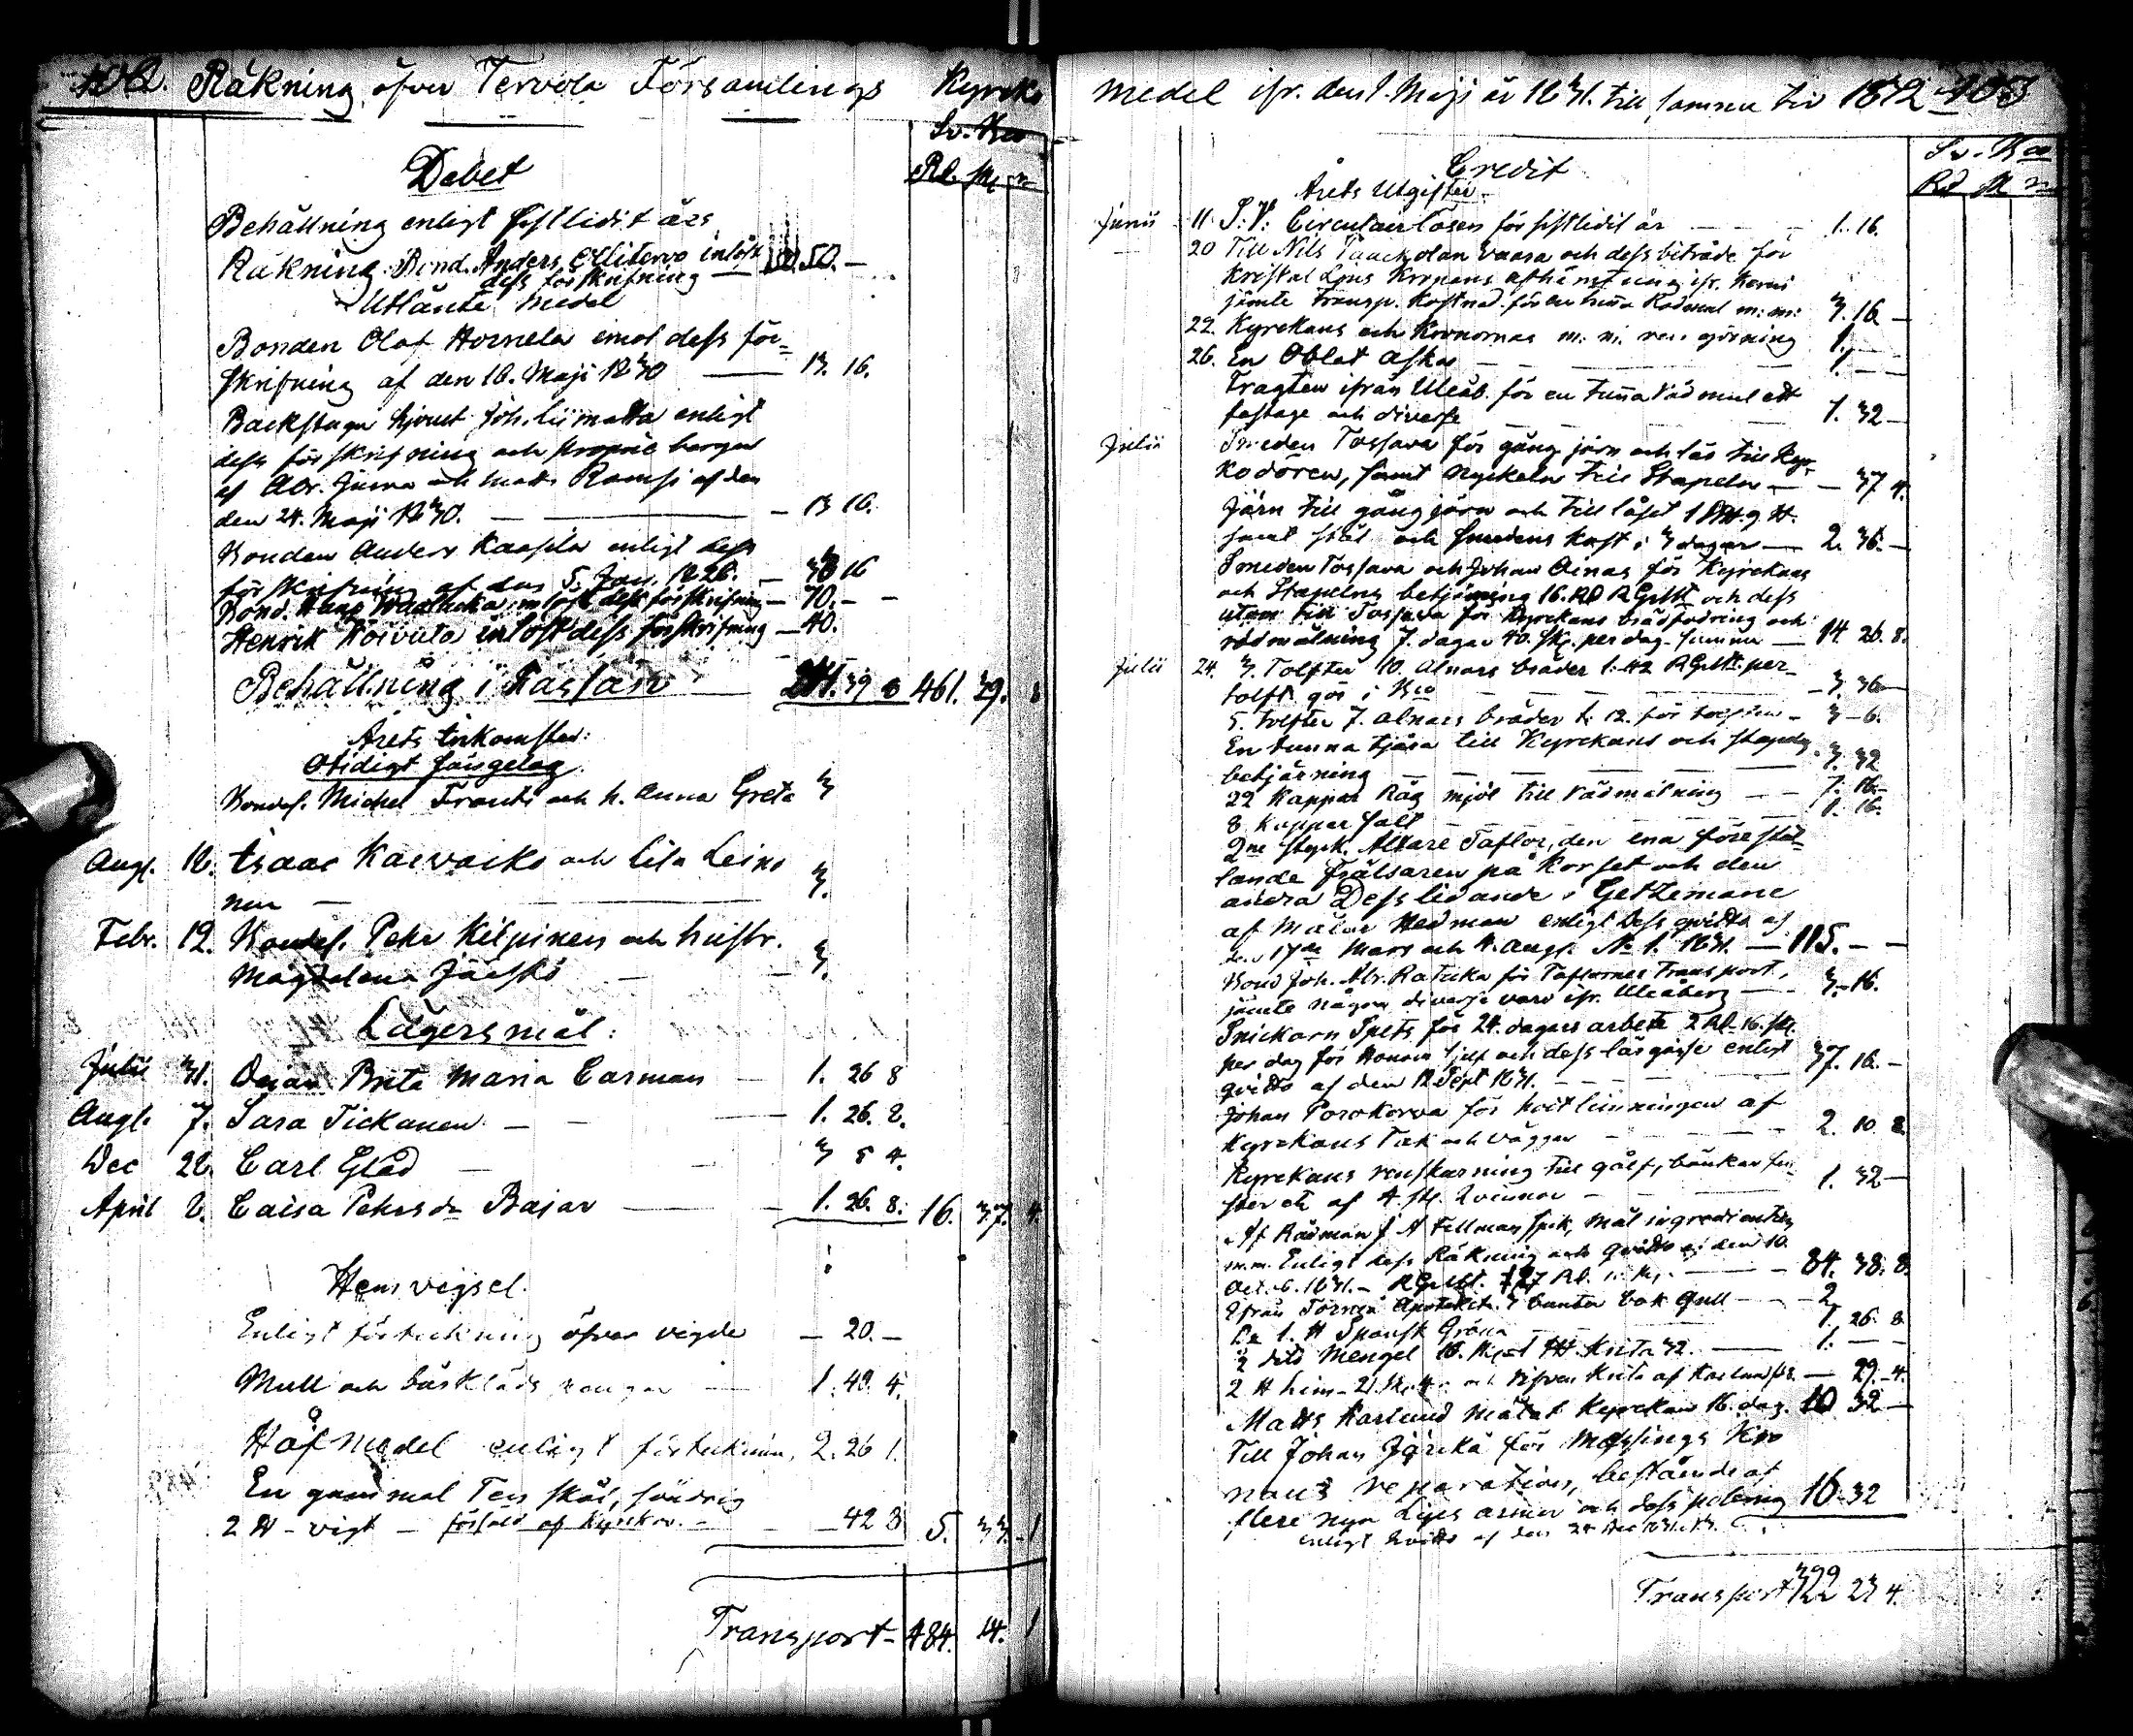 102. Räkning öfver Tervola Församlings Kyrcko
Sv. Bco
Debet
Rd. sk. r.
Behållning enligt sistlidit års
Räkning. Bond. Anders Ollitervo inlöst 50. —
dess förskrifning
Utlänte Medel
Bonden Olof Hornela emot dess för=
skrifning af den 16. Maji 1830 — 13. 16.
Backstugu hjonet Joh. Liimatta enligt
dess förskrifning och borgen
af Abr. Juma och Matts Ramsi af den
den 24. Maji 1830. — 13 16.
Bonden Anders Kaapila enligt dess
förskrifning af den 5. Jan. 1826. — 16
Bond. inlöst dess förskrifning — 70. — —
Henrik Koivuta inlöst dess förskrifning — 40.
Behållning i Kassan — 39 8 461. 39. 8
Årets Inkomster:
Otidigt sängelag
Bondes. Michel Franti och h. Anna Greta 3
Augs. 16. Isaac Karvacko och Lisa Leino
nen — 3.
Febr. 12. Bondes. Pehr Kilpinen och hustr.
Magdalena Jaesko — 3.
Lägersmål:
Julii 31. Brita Maria Earman — 1. 26 8
Augs. 7. Sara Tickanen — 1. 26. 8.
Dec 26. Carl Glad — 3 5 4.
April 8. Caisa Pehrsdr Bajar — 1. 26. 8. 16. 37. 4.
Hemvigsel.
Enligt förteckning öfver vigde — 20. —
Mull och bårkläds pengar — 1. 40. 4.
Håf Medel enligt förteckning. 2. 26 1.
En gammal Ten skål, söndrig
2 ℔ — vigt — försåld af Kyrckov. — 42 8 5. 33. 1
Transport — 484. 14. 1
Medel ifr. den 1. Maji år 1831. till samma tid 1832 103
Sv. Bco
Credit
Rd sk r
Årets Utgifter.
Junii 11. S: V: Circulair lösen för sistlidit år — 1. 16.
20 Till Nils och dess biträde för
Kristal Ljus Kronans afhämtning ifr. Kemi
jämte Transp. Kostnad för en tunna Rödmul m: m: 3. 16 —
22. Kyrckans och Kronornas m: m: rengöring 1. —
26. En Oblat Asker — 1. —
Fragten ifrån Uleåb. för en tunna rödmul ett
fastage och diverse — 1. 32 —
Julii Smeden Tossava för gång järn och lås till Kyr-
kodören, samt Nyckeln till Stapeln — 37 4.
Järn till gångjärn och till låset
samt stål och Smedens kost i 3 dagar — 2. 36. —
Smeden Tossava och Johan Oinas för Kyrckans
och Stapelns betjärning 16. Rd RGst och dess
utom till Tossava för Kyrckans brädfodring och
rödmålning 7. dagar 40. sk. per dag. Summa — 14 26. 8.
Julii 24. 3. Tolfter 10. Alnars bräder 1: 42 RGst. per
tolft gör i Bco — 3. 36 —
5. tolfter 7. alnars bräder 1: 12. för tolften — 3 — 6.
En tunna tjära till Kyrckans och stapelns
betjärning — 3. 32
22 Kappar Råg mjöl till rödmålning — 7. 16. —
8 Kappar salt — 1. 16.
2ne Styck. Altare Taflor, den ena förestäl-
lande Frälsaren på Korset och den
andra Dess lidande i Getzemane
af Målar Hedman enligt Dess qvitto af
d. 17de Mars och 4. Augs. No 1. 1831. — 115. — —
Bond Joh. Abr. Ratucka för Taflornes Transport,
jämte några diverse varor ifr. Uleåborg — 3. 16.
Snickarn Spets för 24. dagars arbete 2 Rd. 16. sk.
per dag för Honom sjelf och dess lärgosse enligt
qvitto af den 12 Sept 1831. — 37. 16. —
Johan Porokorva för hvitlimningen af
Kyrckans Tak och väggar — 2. 10 8
Kyrckans renskurning till gålf, bänkar fen-
ster etc af 4. st. Qvinnor — 1. 32 —
Af Rådman J A Fellman spik, Mål ingredientier
m.m. Enligt dess Räkning och qvitto af den 10.
Oct. 1831. — RGst. 127 Rd. — 84. 38. 8.
Ifrån Torneå Apothek 3 buntar bok gull — 2
Do 1. ℔ Spansk Gröna — 1. 26. 8
2 dito Mengel 16. — 1. — —
2 ℔ Lim — 29. 4.
Matts Karlund målat Kyrckan 16. dag. 10 32 —
Till Johan Järckä för Messings Kro
nans reparation, bestående af
flere nya Ljus armar och dess polering 16. 32
enligt qvitto af den 24 Dec 1831.
Transport 322 23 4.